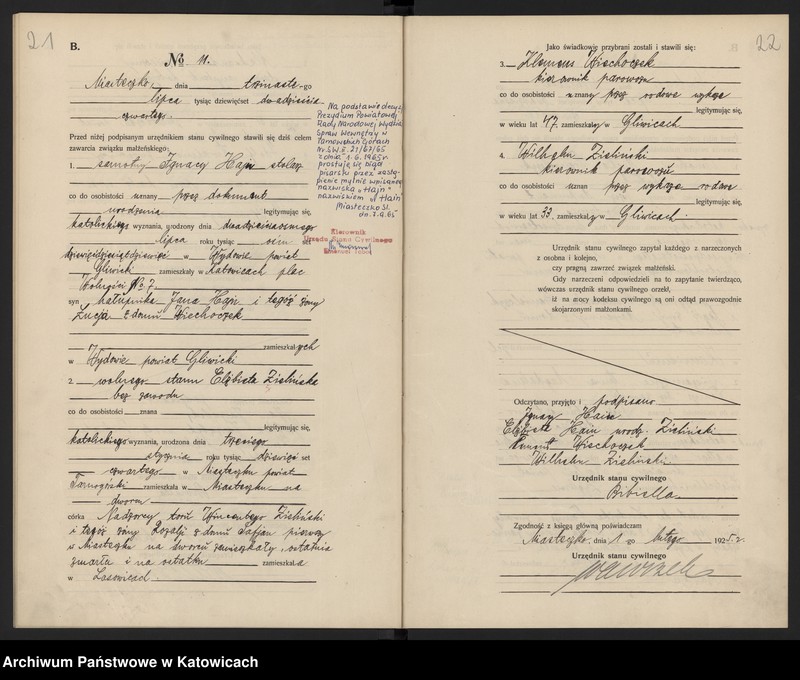 21
B.
No 11.
Miasteczko, dnia trzinaste-go
lipca tysiąc dziewięćset dwadzieścia
czwartego.
Przed niżej podpisanym urzędnikiem stanu cywilnego stawili się dziś celem
zawarcia związku małżeńskiego:
1. samotny Ignacy Hajn stolarz
co do osobistości uznany przez dokument
urodzenia legitymując się,
katolickiego wyznania, urodzony dnia dwudziestegoósmego
lipca roku tysiąc osiem set
dziewięćdziesiątdziewięć w Wydowie powiat
Gliwicki zamieszkały w Katowicach plac
Wolności No 7.
syn chałupnika Jana Hajn i tegoż żony
Łucja z domu Wiechoczek
zamieszkałych
w Wydowie powiat Gliwicki
2. wolnego stanu Elżbieta Zielińska
bez zawodu
co do osobistości znana
legitymując się,
katolickiego wyznania, urodzona dnia trzeciego
stycznia roku tysiąc dziewięć set
czwartego w Miasteczku powiat
Tarnogórski zamieszkała w Miasteczku na
dworcu
córka Nadzorcy toru Wincentego Zieliński
i tegoż żony Rozalji z domu pierwszy
w Miasteczku na dworcu zamieszkały, ostatnia
zmarła i na ostatku zamieszkała
w Lasowicach.
Na podstawie decyzji
Prezydium Powiatowej
Rady Narodowej Wydział
Spraw Wewnętrznych w
Tarnowskich Górach
Nr S.W.II. 21/67/65
z dnia 1.6.1965 r
prostuję się błąd
pisarski przez zastą-
pienie mylnie wpisanego
nazwiska "Hajn"
nazwiskiem "Hain"
Miasteczko Śl.
dn. 7.9.65
Kierownik
Urzędu Stanu Cywilnego
22
Jako świadkowie przybrani zostali i stawili się:
3. Klemens Wiechoczek
kierownik parowozu
co do osobistości uznany przez rodowe wykaze
legitymując się,
w wieku lat 47, zamieszkały w Gliwicach
4. Wilhelm Zieliński
kierownik parowozu
co do osobistości uznan przez wykaze rodowe
legitymując się,
w wieku lat 33, zamieszkały w Gliwicach.
Urzędnik stanu cywilnego zapytał każdego z narzeczonych
z osobna i kolejno,
czy pragną zawrzeć związek małżeński.
Gdy narzeczeni odpowiedzieli na to zapytanie twierdząco,
wówczas urzędnik stanu cywilnego orzekł,
iż na mocy kodeksu cywilnego są oni odtąd prawozgodnie
skojarzonymi małżonkami.
Odczytano, przyjęto i podpisano
Ignacy Hain
Elżbieta Hain urodz. Zieliński
Klemens Wiechoczek
Wilhelm Zieliński
Urzędnik stanu cywilnego
Bibiella
Zgodność z księgą główną poświadczam
Miasteczko, dnia 1-go lutego 1925 r.
Urzędnik stanu cywilnego
Archiwum Państwowe w Katowicach